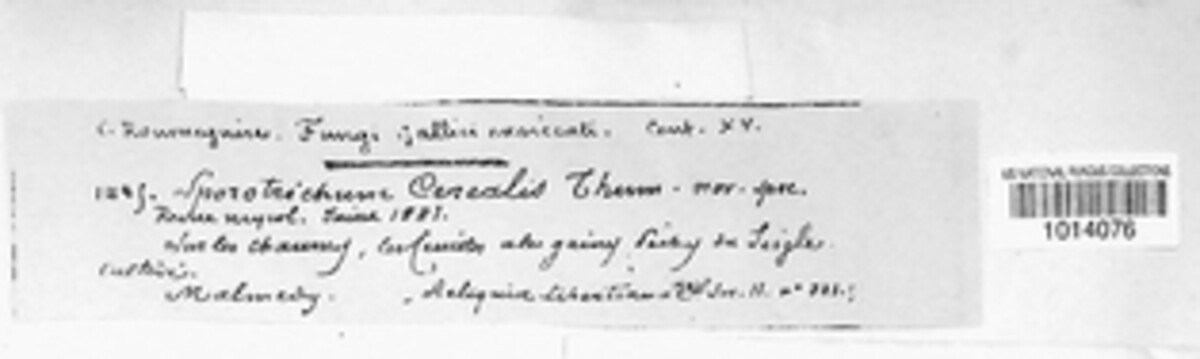 C. Roumeguère. Fungi gallici exsiccati. Cent. XV.
Sporotrichum Cerealis Thum. nov. spec.
Revue mycol. 1881.
Sur les chaumes, les et les gaines du Seigle
cultivé.
Malmedy. Reliquiae Libertianae Ser. II. n°
US NATIONAL FUNGUS COLLECTIONS
1014076